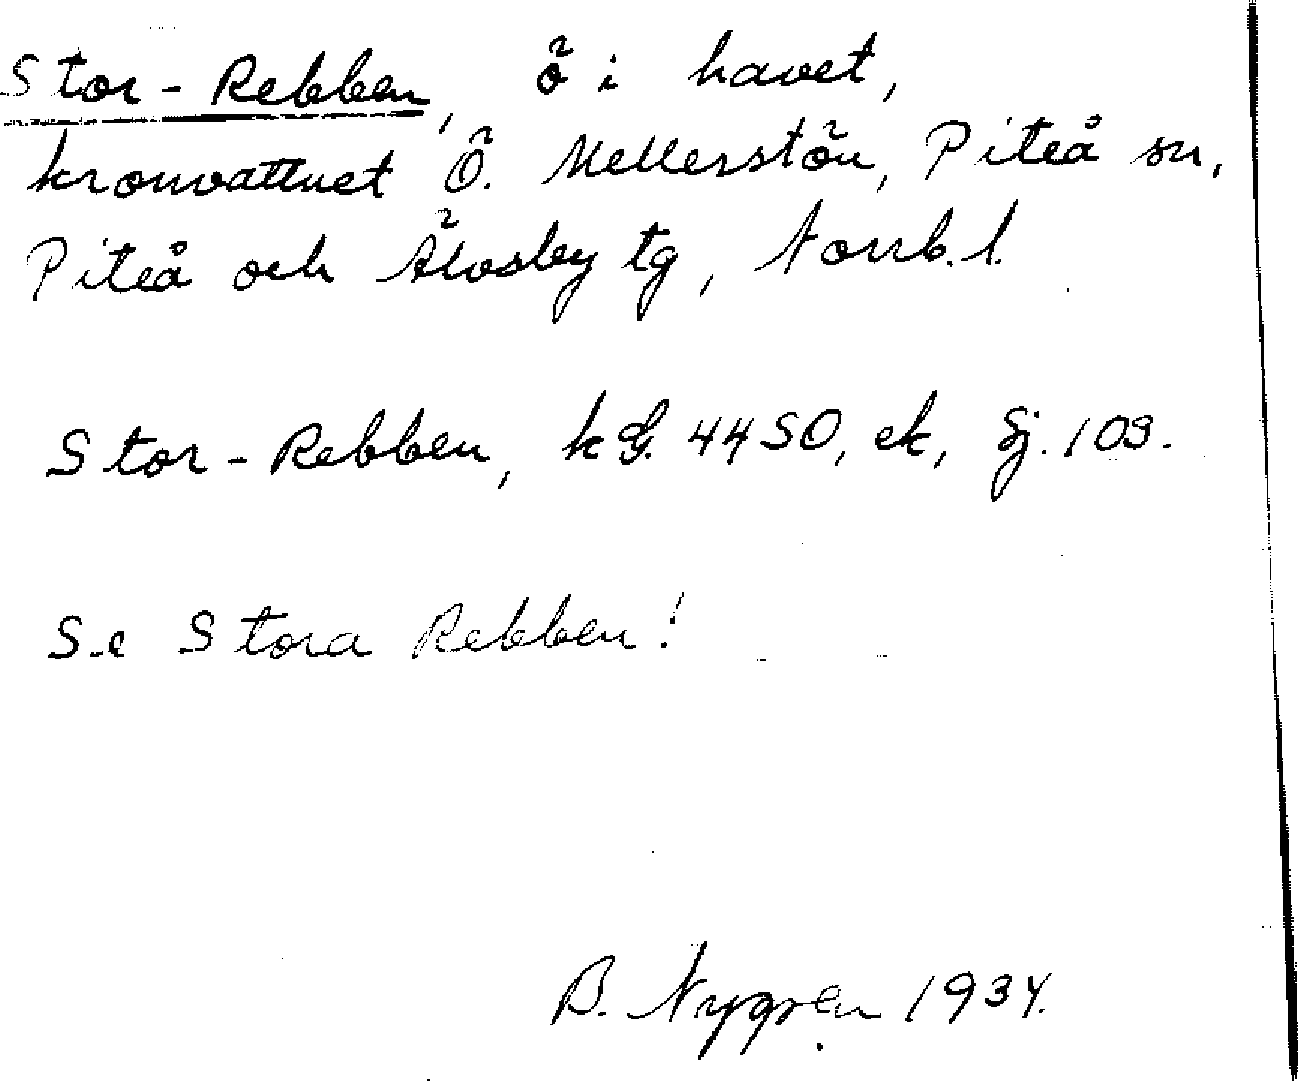 Stor-Rebben, ö i havet,
kronvattnet Ö. Mellerstön, Piteå sn,
Piteå och Älvsby tg, Norrb.l.
Stor-Rebben, k G. 4450, ek, Sj. 109.
Se Stora Rebben!
B. Nygren 1934.